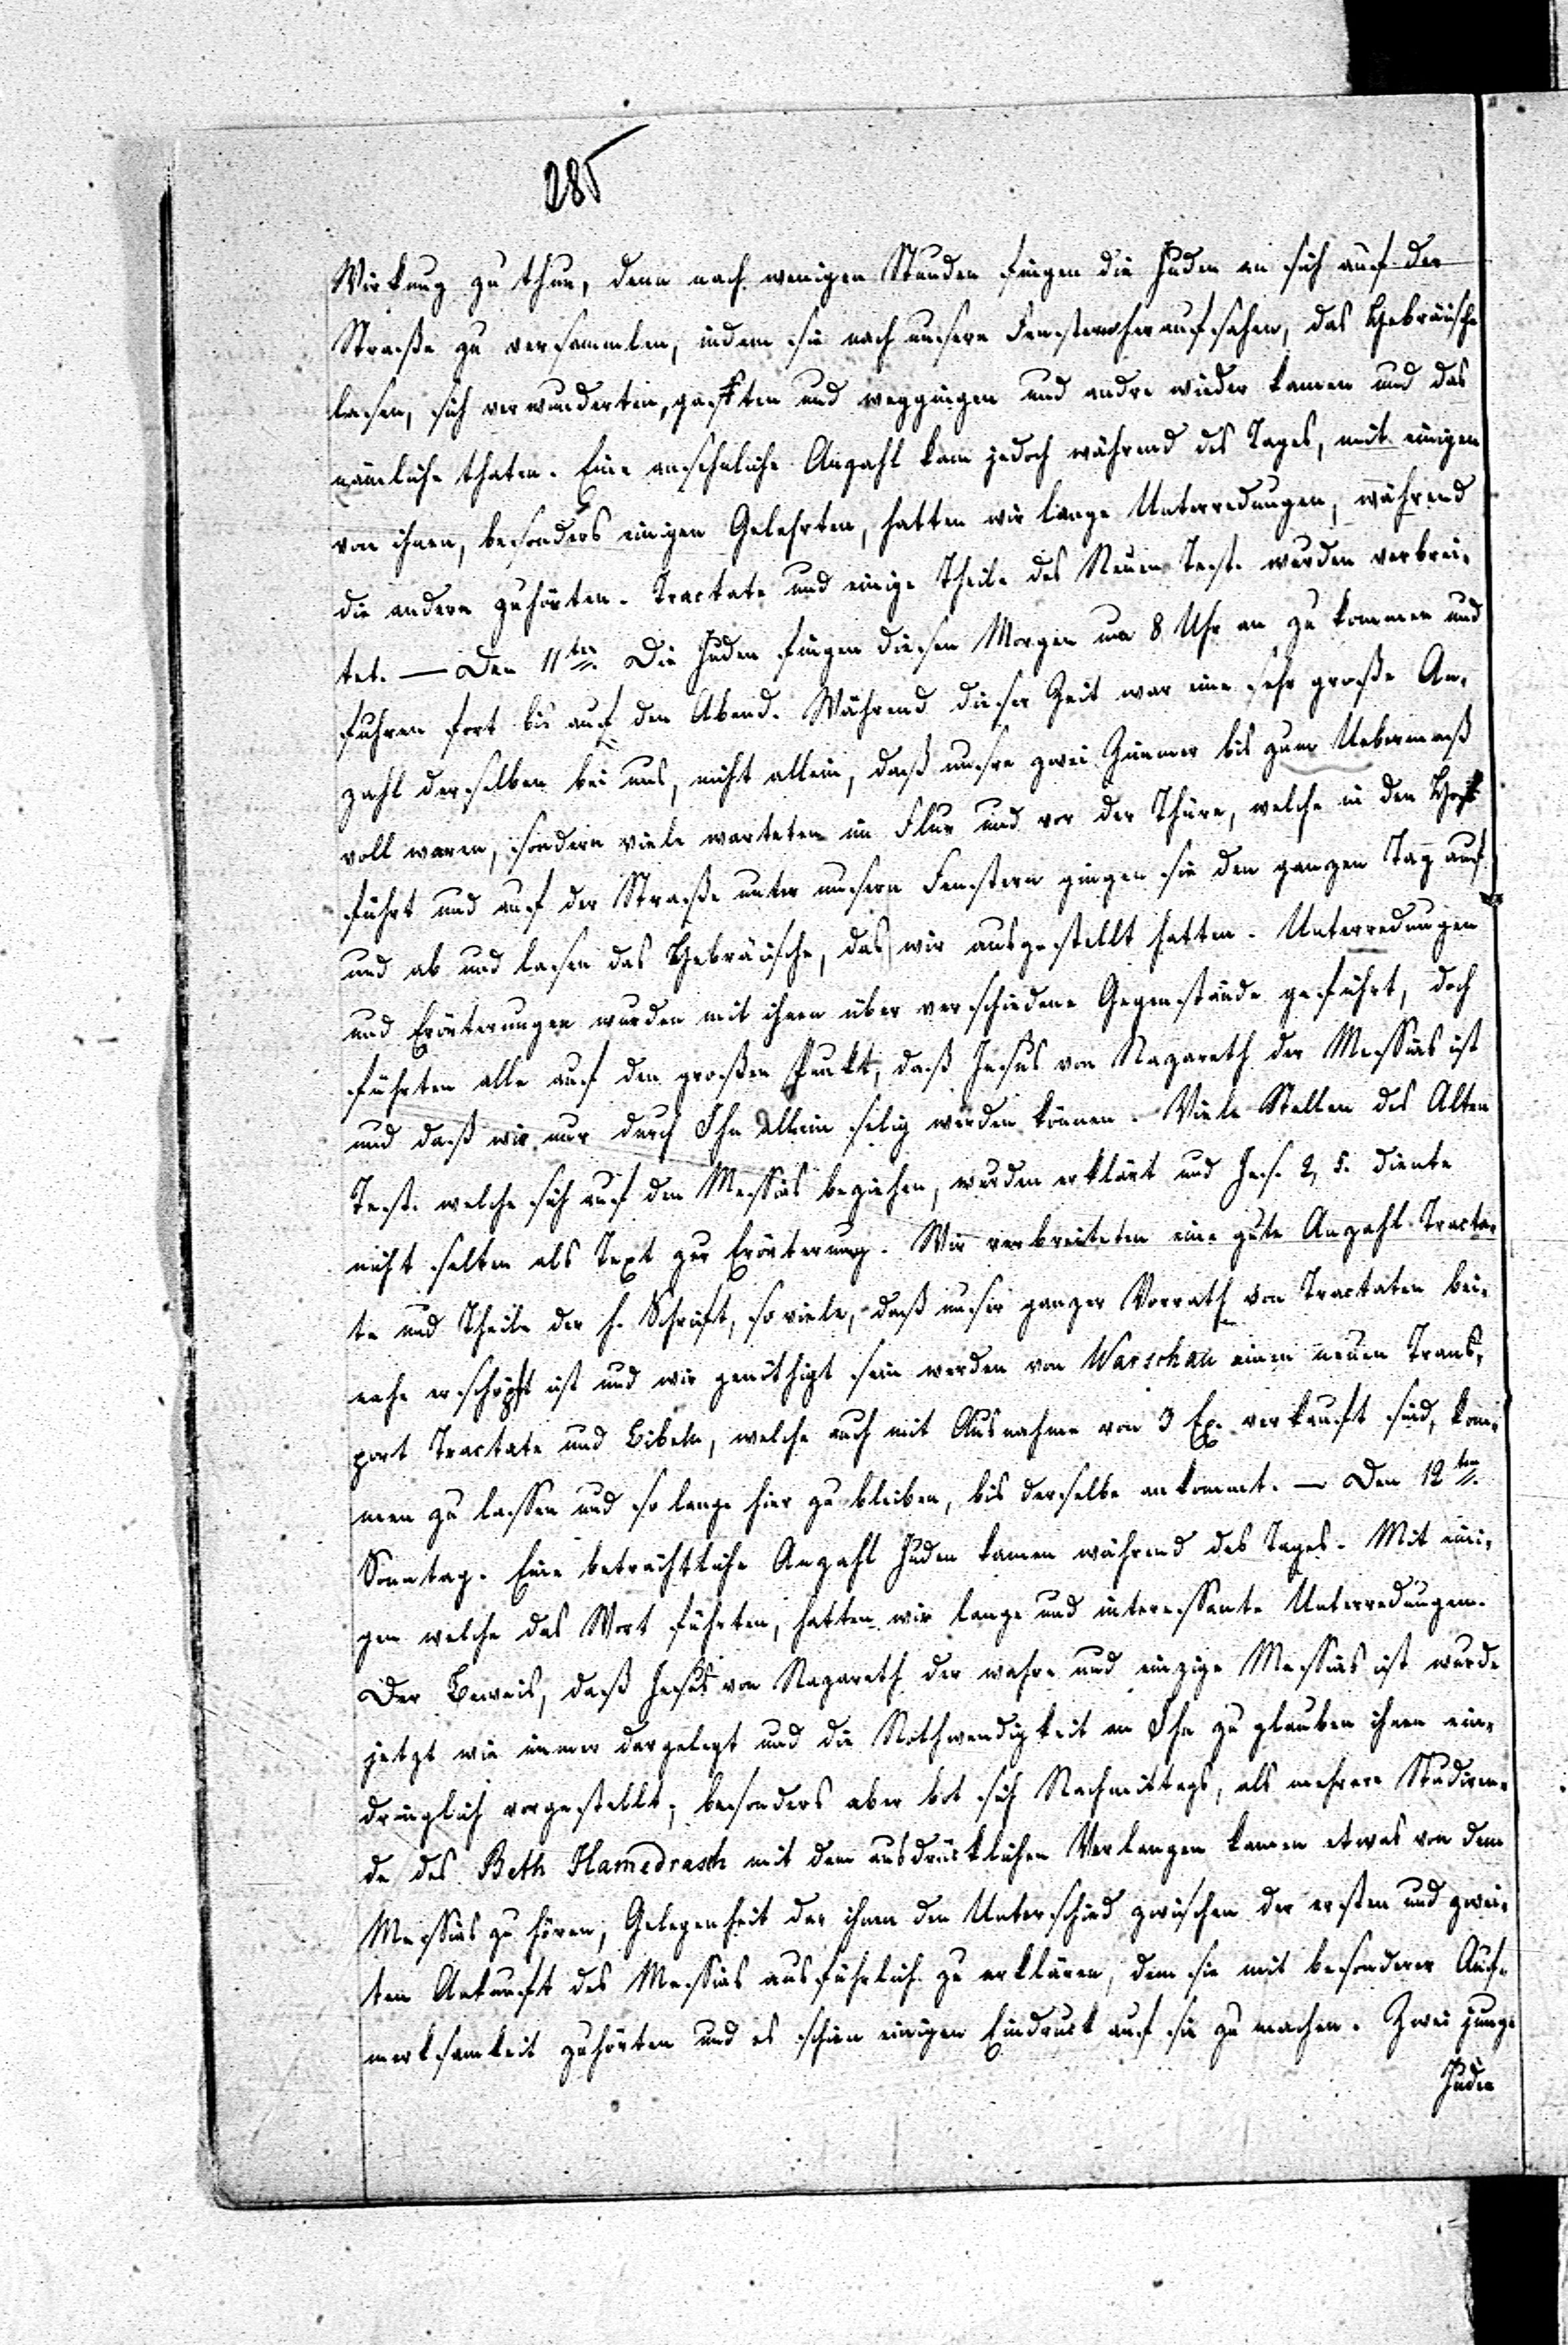 285
Wirkung zu thun, denn nach wenigen Stunden fingen die Juden an sich auf der
Straße zu versammlen, indem sie nach unsern Fenstern heraufsahen, das Hebräische
lasen, sich verwunderten, gafften und weggingen und andre wieder kamen und das
nämliche thaten. Eine ansehnliche Anzahl kam jedoch während des Tages, mit einigen
von ihnen, besonders einigen Gelehrten, hatten wir lange Unterredungen, während
die andern zuhörten. Tractate und einige Theile des Neuen Test. wurden verbrei-
tet. — Den 11ten Die Juden fingen diesen Morgen um 8 Uhr an zu kommen und
fuhren fort bis auf den Abend. Während dieser Zeit war eine sehr große An-
zahl derselben bei uns, nicht allein, daß unsre zwei Zimmer bis zum Uebermaß
voll waren, sondern viele warteten im Flur und vor der Thüre, welche in den Hof
führt und auf der Straße unter unsern Fenstern gingen sie den ganzen Tag auf
und ab und lasen das Hebräische, das wir ausgestellt hatten. Unterredungen
und Erörterungen wurden mit ihnen über verschiedene Gegenstände geführt, doch
führten alle auf den großen Punkt, daß Jesus von Nazareth der Messias ist
und daß wir nur durch Ihn allein selig werden können. Viele Stellen des Alten
Test. welche sich auf den Messias beziehen, wurden erklärt und Jes. 2, 5. diente
nicht selten als Text zur Erörterung. Wir verbreiteten eine gute Anzahl Tracta-
te und Theile der h. Schrift, so viele, daß unser ganzer Vorrath von Tractaten bei-
nahe erschöpft ist und wir genöthigt sein werden von Warschau einen neuen Trans-
port Tractate und Bibeln, welche auch mit Ausnahme von 3 Ex. verkauft sind, kom-
men zu lassen und so lange hier zu bleiben, bis derselbe ankommt. — Den 12ten
Sonntag. Eine beträchtliche Anzahl Juden kamen während des Tages. Mit eini-
gen welche das Wort führten, hatten wir lange und interessante Unterredungen.
Der Beweis, daß Jesus von Nazareth der wahre und einzige Messias ist wurde
jetzt wie immer dargelegt und die Nothwendigkeit an Ihn zu glauben ihnen ein-
dringlich vorgestellt; besonders aber bot sich Nachmittags, als mehrere Studiren-
de des Beth Hamedrasch mit dem ausdrücklichen Verlangen kamen etwas von dem
Messias zu hören, Gelegenheit dar ihnen den Unterschied zwischen der ersten und zwei-
ten Ankunft des Messias ausführlich zu erklären, dem sie mit besonderer Auf-
merksamkeit zuhörten und es schien einigen Eindruck auf sie zu machen. Zwei junge
Juden